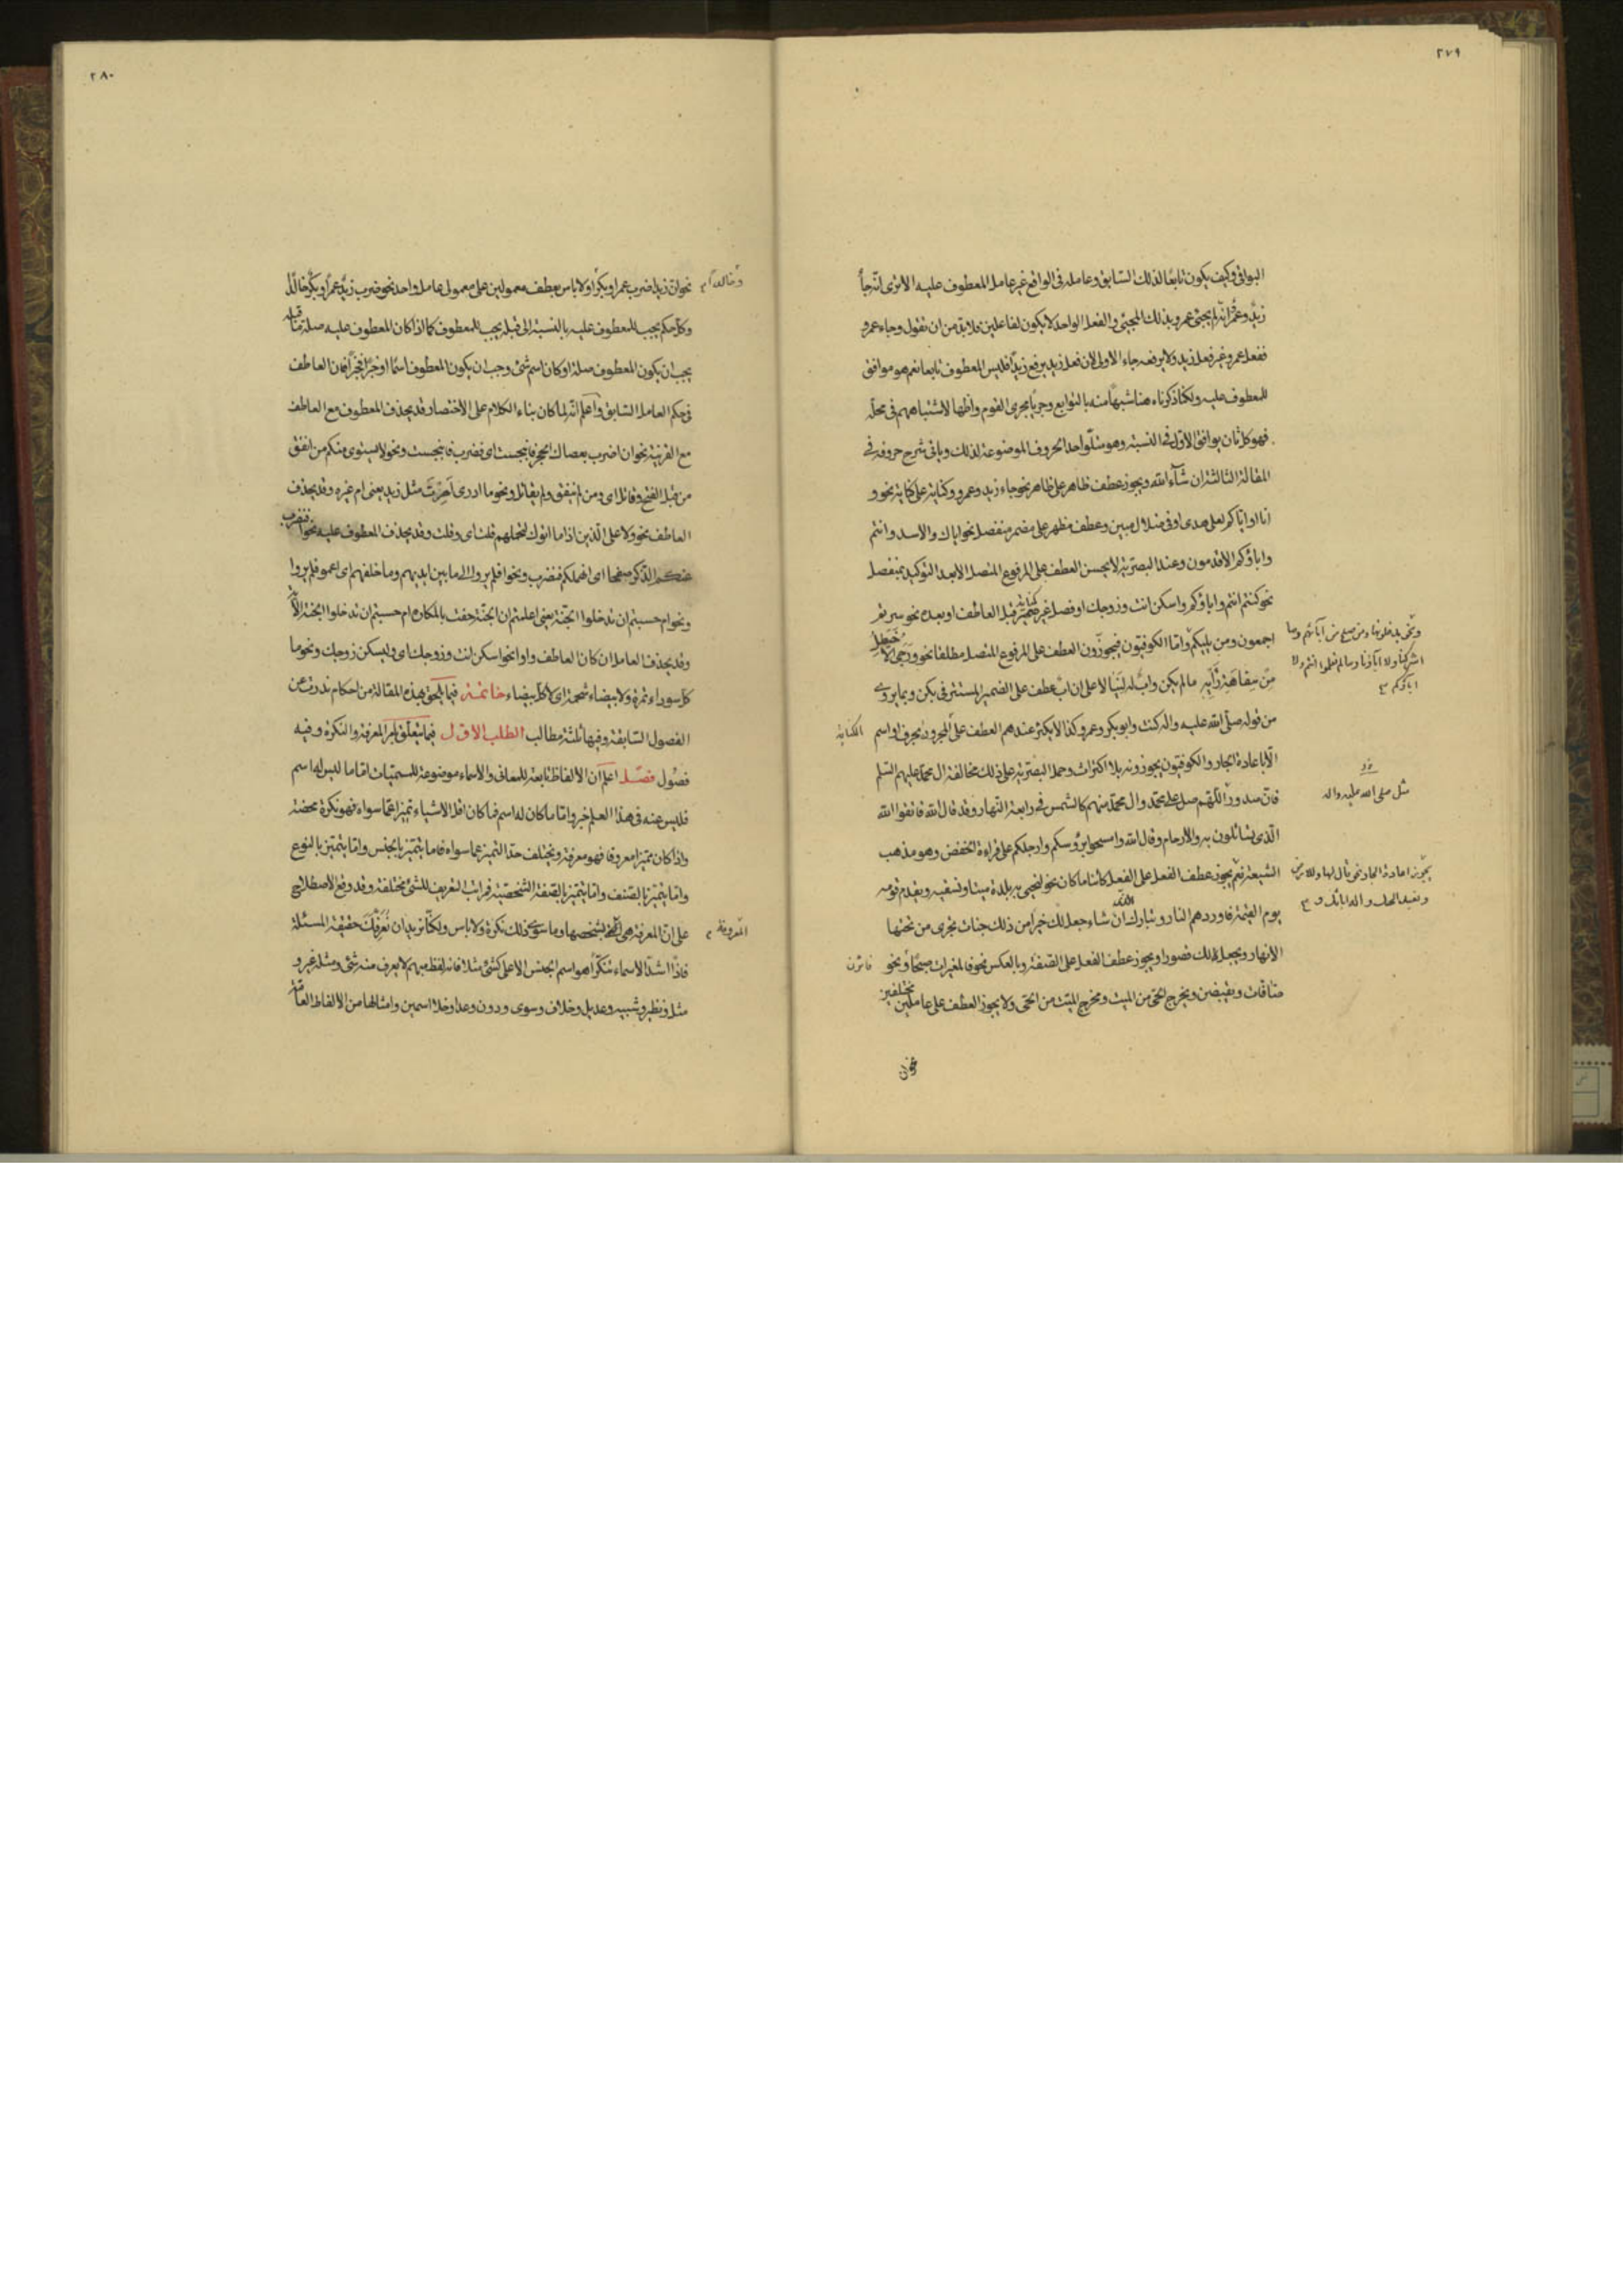 ٢٧٩
البواقی وکیف یکون تابعا لذلک السابق وعامله فی الواقع غیر عامل المعطوف علیه الا تری انه جاء
زید وعمرو انه لم یجئ عمرو بذلک المجیئ والفعل الواحد لا یکون لفاعلین فلا بد من ان نقول وجاء عمرو
ففعل عمرو غیر فعل زید ولا یرفعه جاء الاولی لان فعل زید یرفع زیدا فلیس المعطوف تابعا نعم هو موافق
للمعطوف علیه ولکنا ذکرناه هنا شبها منه بالتوابع وجریا مجری القوم واظهارا لاشتباههم فی محله
فهو کل ثان یوافق الاول فی النسبة وهو متلو احد الحروف الموضوعة لذلک ویاتی شرح حروفه فی
المقالة الثالثة ان شاء الله ویجوز عطف ظاهر علی ظاهر نحو جاء زید وعمرو وکنایة علی کنایة نحو و
انا او ایاکم لعلی هدی او فی ضلال مبین وعطف مظهر علی مضمر منفصل نحو ایاک والاسد وانتم
واباؤکم الاقدمون وعند البصریة لا یحسن العطف علی المرفوع المتصل الا بعد التوکید بمنفصل
نحو کنتم انتم واباؤکم واسکن انت وزوجک او فصل غیر ضمیر قبل العاطف او بعده نحو سریتم
کنایة
اجمعون ومن یلیکم واما الکوفیون فیجوزون العطف علی المرفوع المتصل مطلقا نحو ورجی الاخیطل
من سفاهة رأیه ما لم یکن واب له لینالا علی ان اب عطف علی الضمیر المستتر فی یکن وبما یروی
من قوله صلی الله علیه واله کنت وابو بکر وعمر وکذا لا یکثر عندهم العطف علی المجرور بحرف او اسم
الکنایة
الا باعادة الجار والکوفیون یجوزونه بلا اکتراث وحمل البصریة علی ذلک مخالفة ال محمد علیهم السلم
فان صدور اللهم صل علی محمد وال محمد منهم کالشمس فی رابعة النهار وقد قال الله فاتقوا الله
الذی تسائلون به والارحام وقال الله وامسحوا برؤسکم وارجلکم علی قراءة الخفض وهو مذهب
الشیعة نعم یجوز عطف الفعل علی الفعل کائنا ما کان نحو لنحیی به بلدة میتا ونسقیه ویقدم قومه
یوم القیمة فاوردهم النار وتبارک الذی ان شاء جعل لک خیرا من ذلک جنات تجری من تحتها
الانهار ویجعل لک قصورا ویجوز عطف الفعل علی الصفة وبالعکس نحو فالمغیرات صبحا ونحو
صافات ویقبضن ویخرج الحی من المیت ومخرج المیت من الحی ولا یجوز العطف علی عاملین مختلفین
نحو ان
مثل صلی الله علیه واله
٢٨٠
نحو ان زیدا ضرب عمرا وبکرا ولا باس بعطف معمولین علی معمولی عامل واحد نحو ضرب زید عمرا وبکر خالدا
وخالدا
وکل حکم یجب للمعطوف علیه بالنسبة الی قبله یجب للمعطوف کما اذا کان المعطوف علیه صلة لما قبله
یجب ان یکون المعطوف صلة او کان اسم شئ وجب ان یکون المعطوف اسما او خبرا فخبرا فان العاطف
فی حکم العامل السابق واعلم انه لما کان بناء الکلام علی الاختصار قد یحذف المعطوف مع العاطف
مع القرینة نحو ان اضرب بعصاک الحجر فانبجست ای فضرب فانبجست ونحو لا یستوی منکم من انفق
من قبل الفتح وقاتل ای ومن لم ینفق ولم یقاتل ونحو ما ادری اهربت مثل زید یعنی ام غیره وقد یحذف
العاطف نحو ولا علی الذین اذا ما اتوک لتحملهم قلت ای وقلت وقد یحذف المعطوف علیه نحو افنضرب
عنکم الذکر صفحا ای انهملکم فنضرب ونحو افلم یروا الی ما بین ایدیهم وما خلفهم ای اعموا فلم یروا
ونحو ام حسبتم ان تدخلوا الجنة یعنی اعلمتم ان الجنة حفت بالمکاره ام حسبتم ان تدخلوا الجنة الایة
وقد یحذف العامل ان کان العاطف واوا نحو اسکن انت وزوجک ای ولیسکن زوجک ونحو ما
کل سوداء تمرة ولا بیضاء شحمة ای لا کل بیضاء خاتمة فیما یلحق بهذه المقالة من احکام ندرت عن
الفصول السابقة وفیها ثلثة مطالب المطلب الاول فیما یتعلق بامر المعرفة والنکرة وفیه
فصول فصل اعلم ان الالفاظ تابعة للمعانی والاسماء موضوعة للمسمیات اما ما لیس له اسم
فلیس عنه فی هذا العلم خبر واما ما کان له اسم فما کان اقل الاشیاء تمیزا عما سواه فهو نکرة محضة
واذا کان ممیزا معروفا فهو معرفة ویختلف حد التمیز عما سواه فاما یتمیز بالجنس واما یتمیز بالنوع
واما یتمیز بالصنف واما یتمیز بالصفة الشخصیة فمراتب التعریف للشئ مختلفة وقد وقع الاصطلاح
علی ان المعرفة هی بشخصها وما سوی ذلک نکرة ولا باس ولکنا نرید ان نعرفک حقیقة المسئلة
المعروفة
فاذا اشد الاسماء تنکرا هو اسم الجنس الاعلی کشئ مثلا فانه لفظ مبهم لا یعرف منه شئ ومثله غیر و
مثل ونظیر وشبیه وعدیل وخلاف وسوی ودون وعدا وخلا اسمین وامثالها من الالفاظ العامة